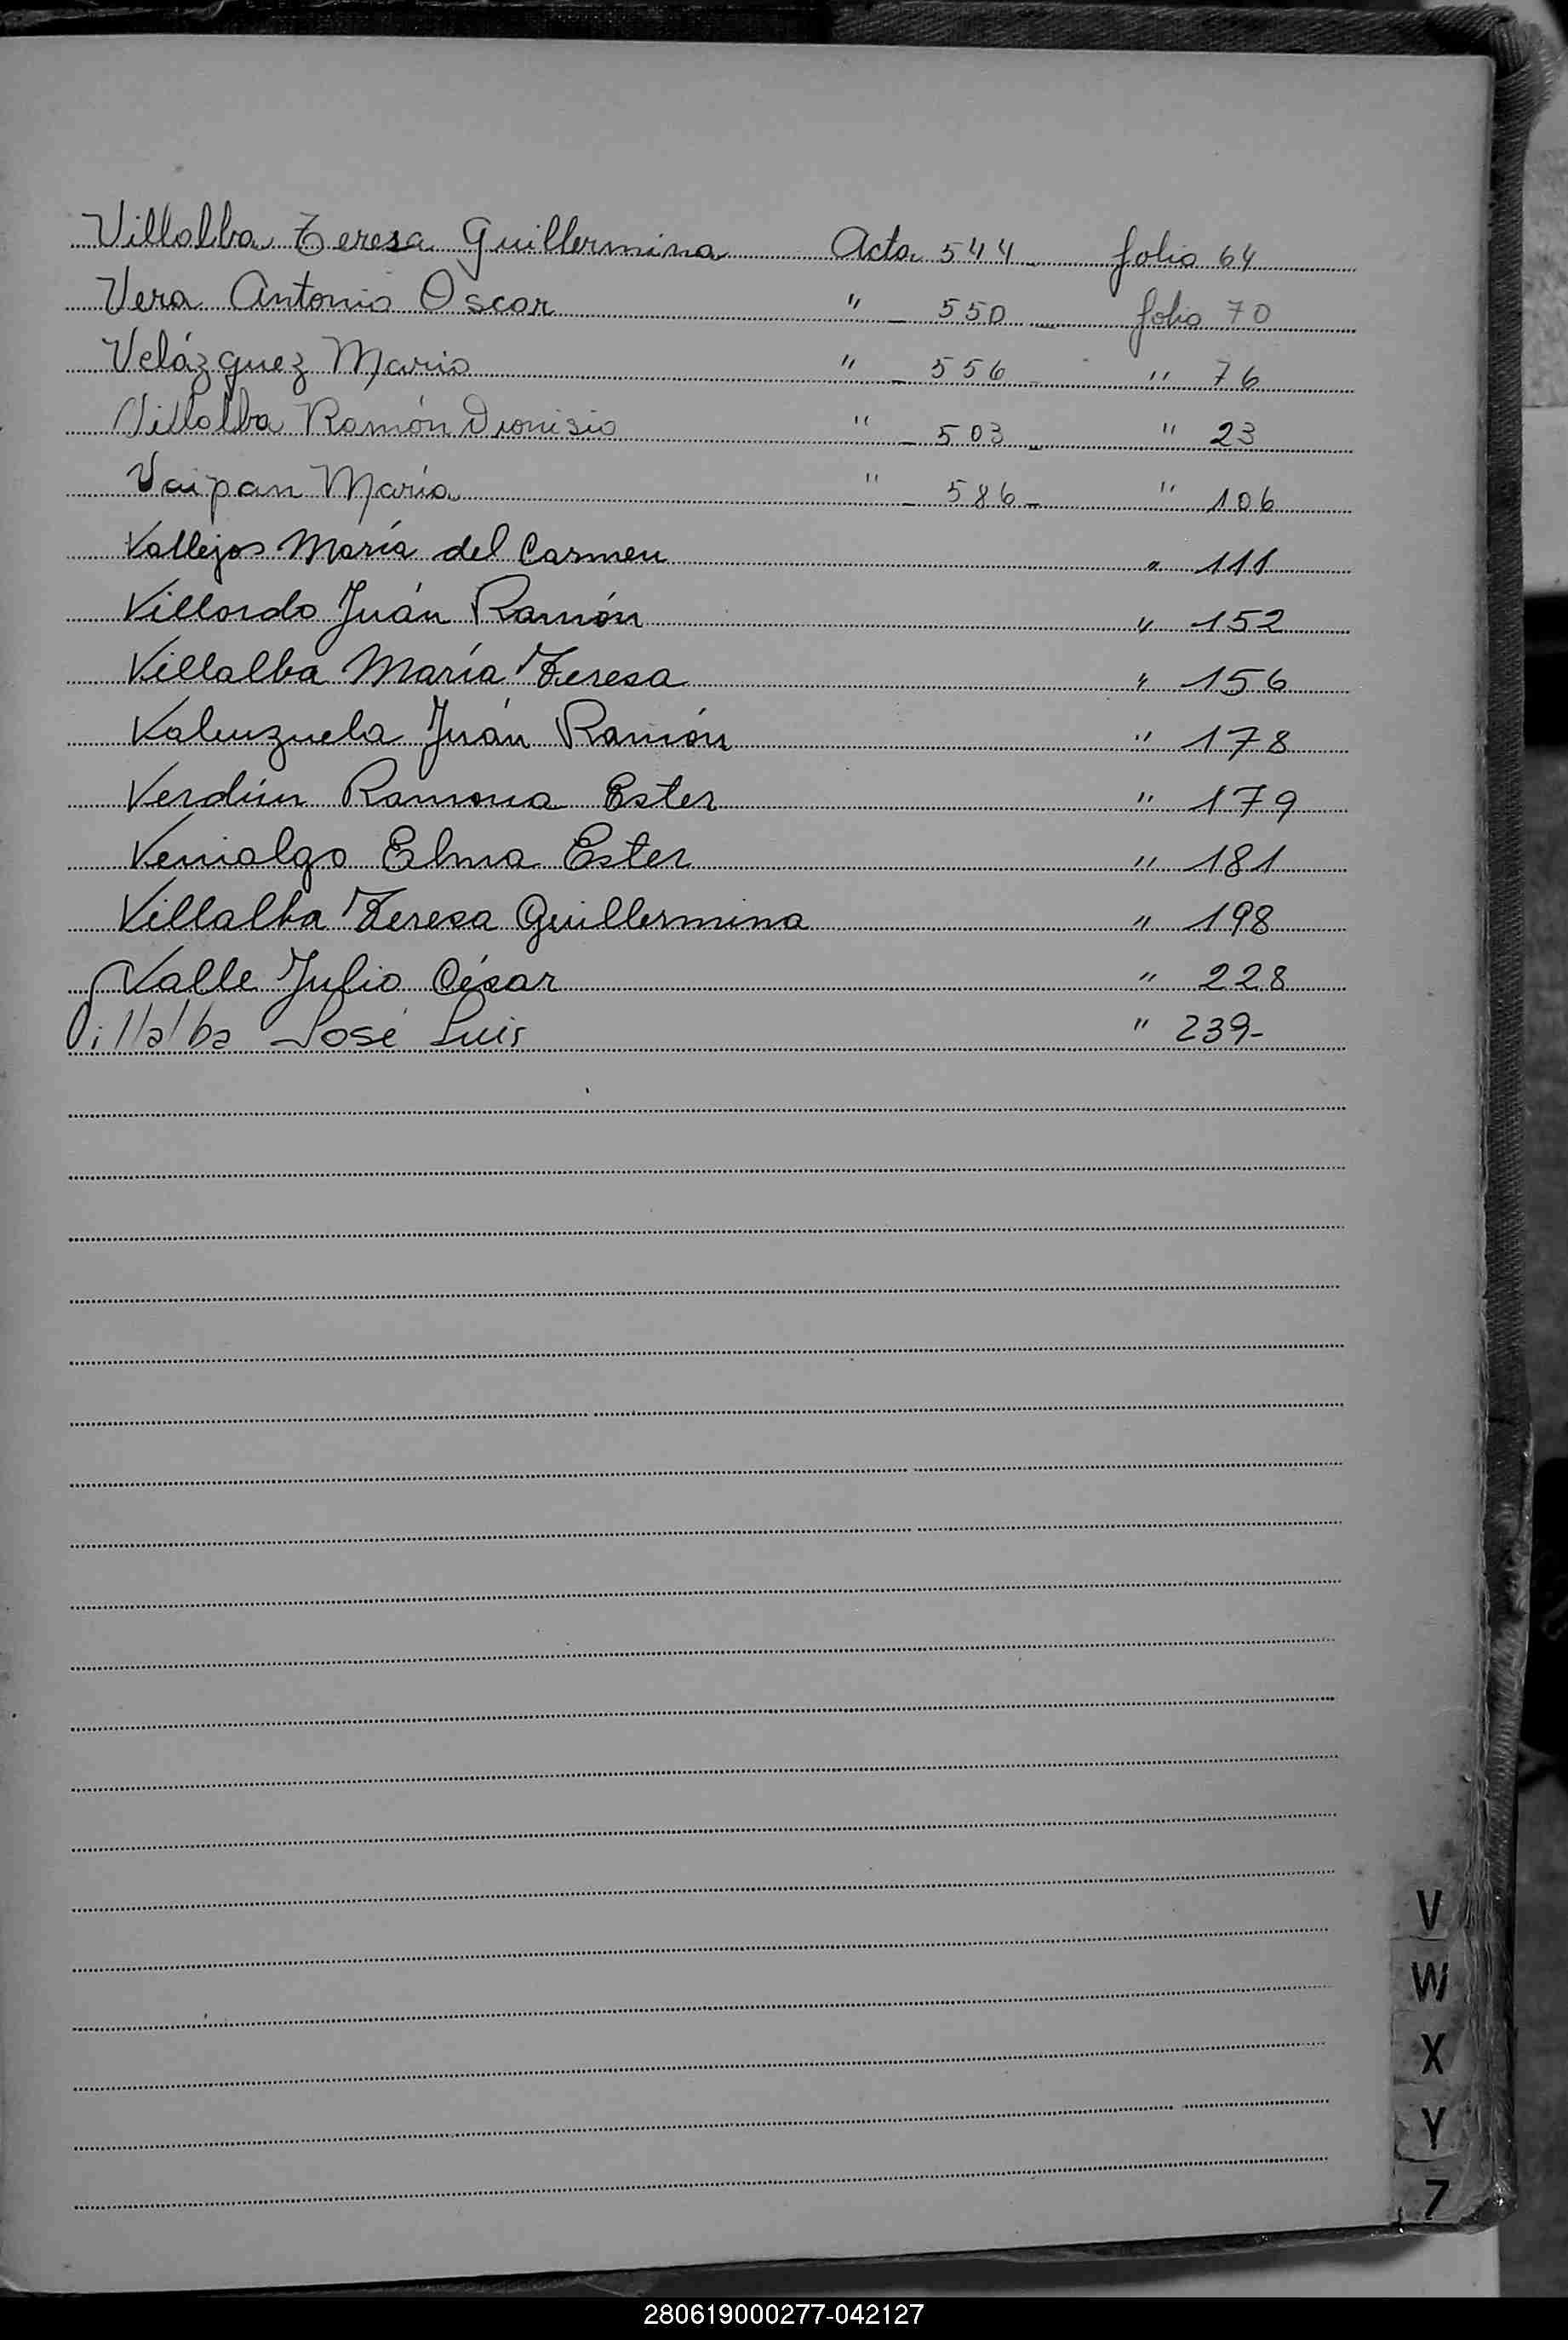 Villalba Teresa Guillermina Acta 544 folio 64
Vera Antonio Oscar " - 550 folio 70
Velázquez Mario " - 556 - " 76
Villalba Ramón Dionisio " - 503 - " 23
Vaipan María " - 586 - " 106
Vallejos María del Carmen " 111
Villordo Juán Ramón " 152
Villalba María Teresa " 156
Valenzuela Juán Ramón " 178
Verdún Ramona Ester " 179
Venialgo Elma Ester " 181
Villalba Teresa Guillermina " 198
Valle Julio César " 228
Villalba José Luis " 239-
V
W
X
Y
Z
280619000277-042127